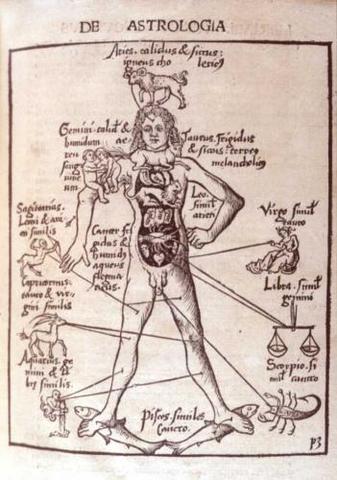 DE ASTROLOGIA
Aries. calidus & siccus:
igneus cho
lericꝰ
Gemini. calidꝰ &
humidum ae
reu
sang
uine
um
Taurus. Frigidus
& siccus: terreꝰ
melancholicꝰ
Leo.
simil'
arieti
Sagitarius.
Leoni & ari
eti similis
Cancer fri
gidus &
humidꝰ
aqueus
flegma
ticus.
Virgo simil'
tauro
Capricornus.
tauro & vir
gini similis
Libra. simil'
gemini
Aquarius. ge
mini & li
bre similis.
Scorpio. si
mil' cancro
Pisces. similes
Cancro.
p3